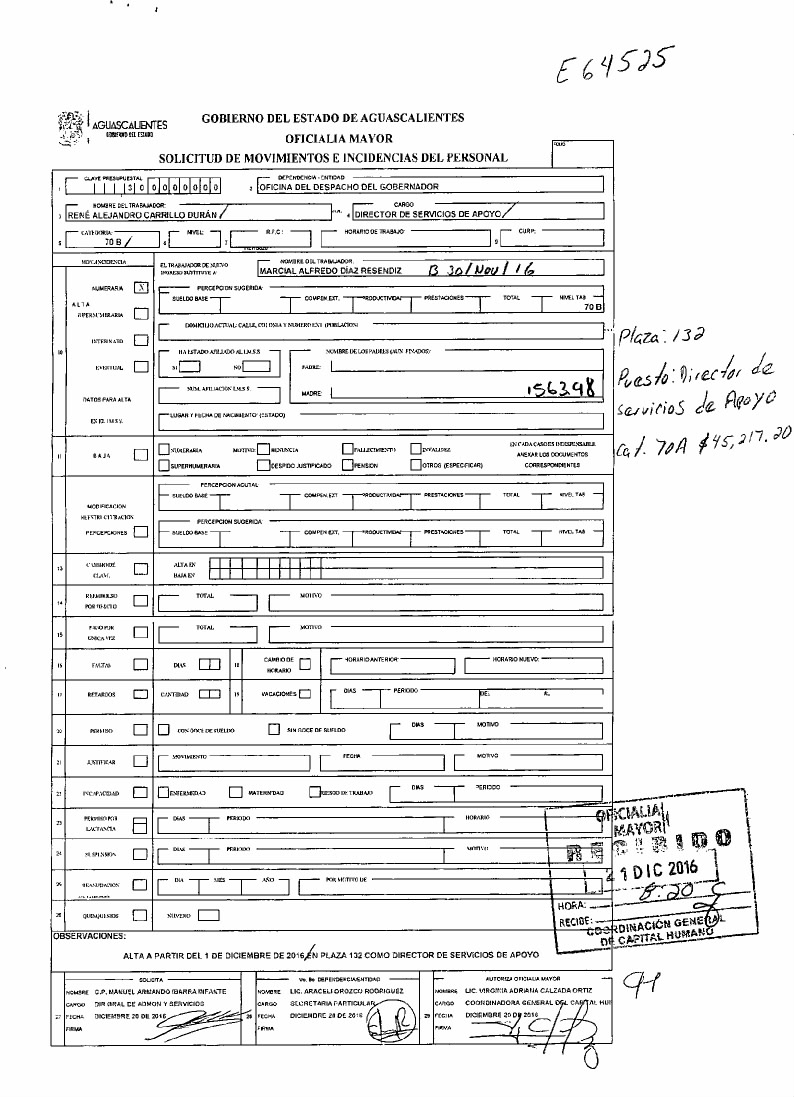 E64525
AGUASCALIENTES
GOBIERNO DEL ESTADO
GOBIERNO DEL ESTADO DE AGUASCALIENTES
OFICIALIA MAYOR
SOLICITUD DE MOVIMIENTOS E INCIDENCIAS DEL PERSONAL
FOLIO
CLAVE PRESUPUESTAL
DEPENDENCIA - ENTIDAD
1 3 0 0 0 0 0 0 0 2 OFICINA DEL DESPACHO DEL GOBERNADOR
NOMBRE DEL TRABAJADOR: CARGO
3 RENÉ ALEJANDRO CARRILLO DURÁN / 4 DIRECTOR DE SERVICIOS DE APOYO /
CATEGORIA: NIVEL: R.F.C.: HORARIO DE TRABAJO: CURP:
5 70 B / 6 7 9
MOV./INCIDENCIA EL TRABAJADOR DE NUEVO INGRESO SUSTITUYE A: NOMBRE DEL TRABAJADOR:
MARCIAL ALFREDO DÍAZ RESENDIZ B 30/Nov/16
NUMERARIA X PERCEPCION SUGERIDA:
SUELDO BASE COMPEN.EXT. PRODUCTIVIDAD PRESTACIONES TOTAL NIVEL TAB
70 B
ALTA
SUPERNUMERARIA
DOMICILIO ACTUAL: CALLE, COLONIA Y NUMERO EXT. (POBLACION)
INTERINATO
10
HA ESTADO AFILIADO AL I.M.S.S. NOMBRE DE LOS PADRES (AUN FINADOS)
EVENTUAL SI NO PADRE:
NUM. AFILIACION I.M.S.S.
DATOS PARA ALTA MADRE: 156398
EN EL I.M.S.S. LUGAR Y FECHA DE NACIMIENTO: (ESTADO)
Plaza: 132
Puesto: Director de
servicios de Apoyo
Cat. 70A $45,217.20
11 BAJA NUMERARIA MOTIVO: RENUNCIA FALLECIMIENTO INVALIDEZ EN CADA CASO ES INDISPENSABLE
ANEXAR LOS DOCUMENTOS
SUPERNUMERARIA DESPIDO JUSTIFICADO PENSION OTROS (ESPECIFICAR) CORRESPONDIENTES
PERCEPCION ACUTAL
SUELDO BASE COMPEN.EXT. PRODUCTIVIDAD PRESTACIONES TOTAL NIVEL TAB
MODIFICACION
REESTRUCTURACION
PERCEPCION SUGERIDA:
PERCEPCIONES SUELDO BASE COMPEN.EXT. PRODUCTIVIDAD PRESTACIONES TOTAL NIVEL TAB
13 CAMBIO DE CLAVE ALTA EN
BAJA EN
14 REEMBOLSO TOTAL MOTIVO
15 PAGO POR UNICA VEZ TOTAL MOTIVO
16 FALTAS DIAS 18 CAMBIO DE HORARIO HORARIO ANTERIOR: HORARIO NUEVO:
17 RETARDOS CANTIDAD 19 VACACIONES DIAS PERIODO DEL AL
20 PERMISO CON GOCE DE SUELDO SIN GOCE DE SUELDO DIAS MOTIVO
21 JUSTIFICAR MOVIMIENTO FECHA MOTIVO
22 INCAPACIDAD ENFERMEDAD MATERNIDAD RIESGO DE TRABAJO DIAS PERIODO
23 PERMISO POR LACTANCIA DIAS PERIODO HORARIO
24 SUSPENSION DIAS PERIODO MOTIVO
25 REANUDACION DIA MES AÑO POR MOTIVO DE
26 QUINQUENIOS NUMERO
OFICIALIA
MAYOR
RECIBIDO
21 DIC 2016
HORA: 8:20
RECIBE:
COORDINACIÓN GENERAL
DE CAPITAL HUMANO
OBSERVACIONES:
ALTA A PARTIR DEL 1 DE DICIEMBRE DE 2016 EN PLAZA 132 COMO DIRECTOR DE SERVICIOS DE APOYO
SOLICITA
NOMBRE C.P. MANUEL ARMANDO IBARRA INFANTE
CARGO DIR GRAL DE ADMON Y SERVICIOS
27 FECHA DICIEMBRE 20 DE 2016
FIRMA
Vo. Bo DEPENDENCIA/ENTIDAD
NOMBRE LIC. ARACELI OROZCO RODRIGUEZ
CARGO SECRETARIA PARTICULAR
28 FECHA DICIEMBRE 20 DE 2016
FIRMA
AUTORIZA OFICIALIA MAYOR
NOMBRE LIC. VIRGINIA ADRIANA CALZADA ORTIZ
CARGO COORDINADORA GENERAL DEL CAPITAL HUM
29 FECHA DICIEMBRE 20 DE 2016
FIRMA